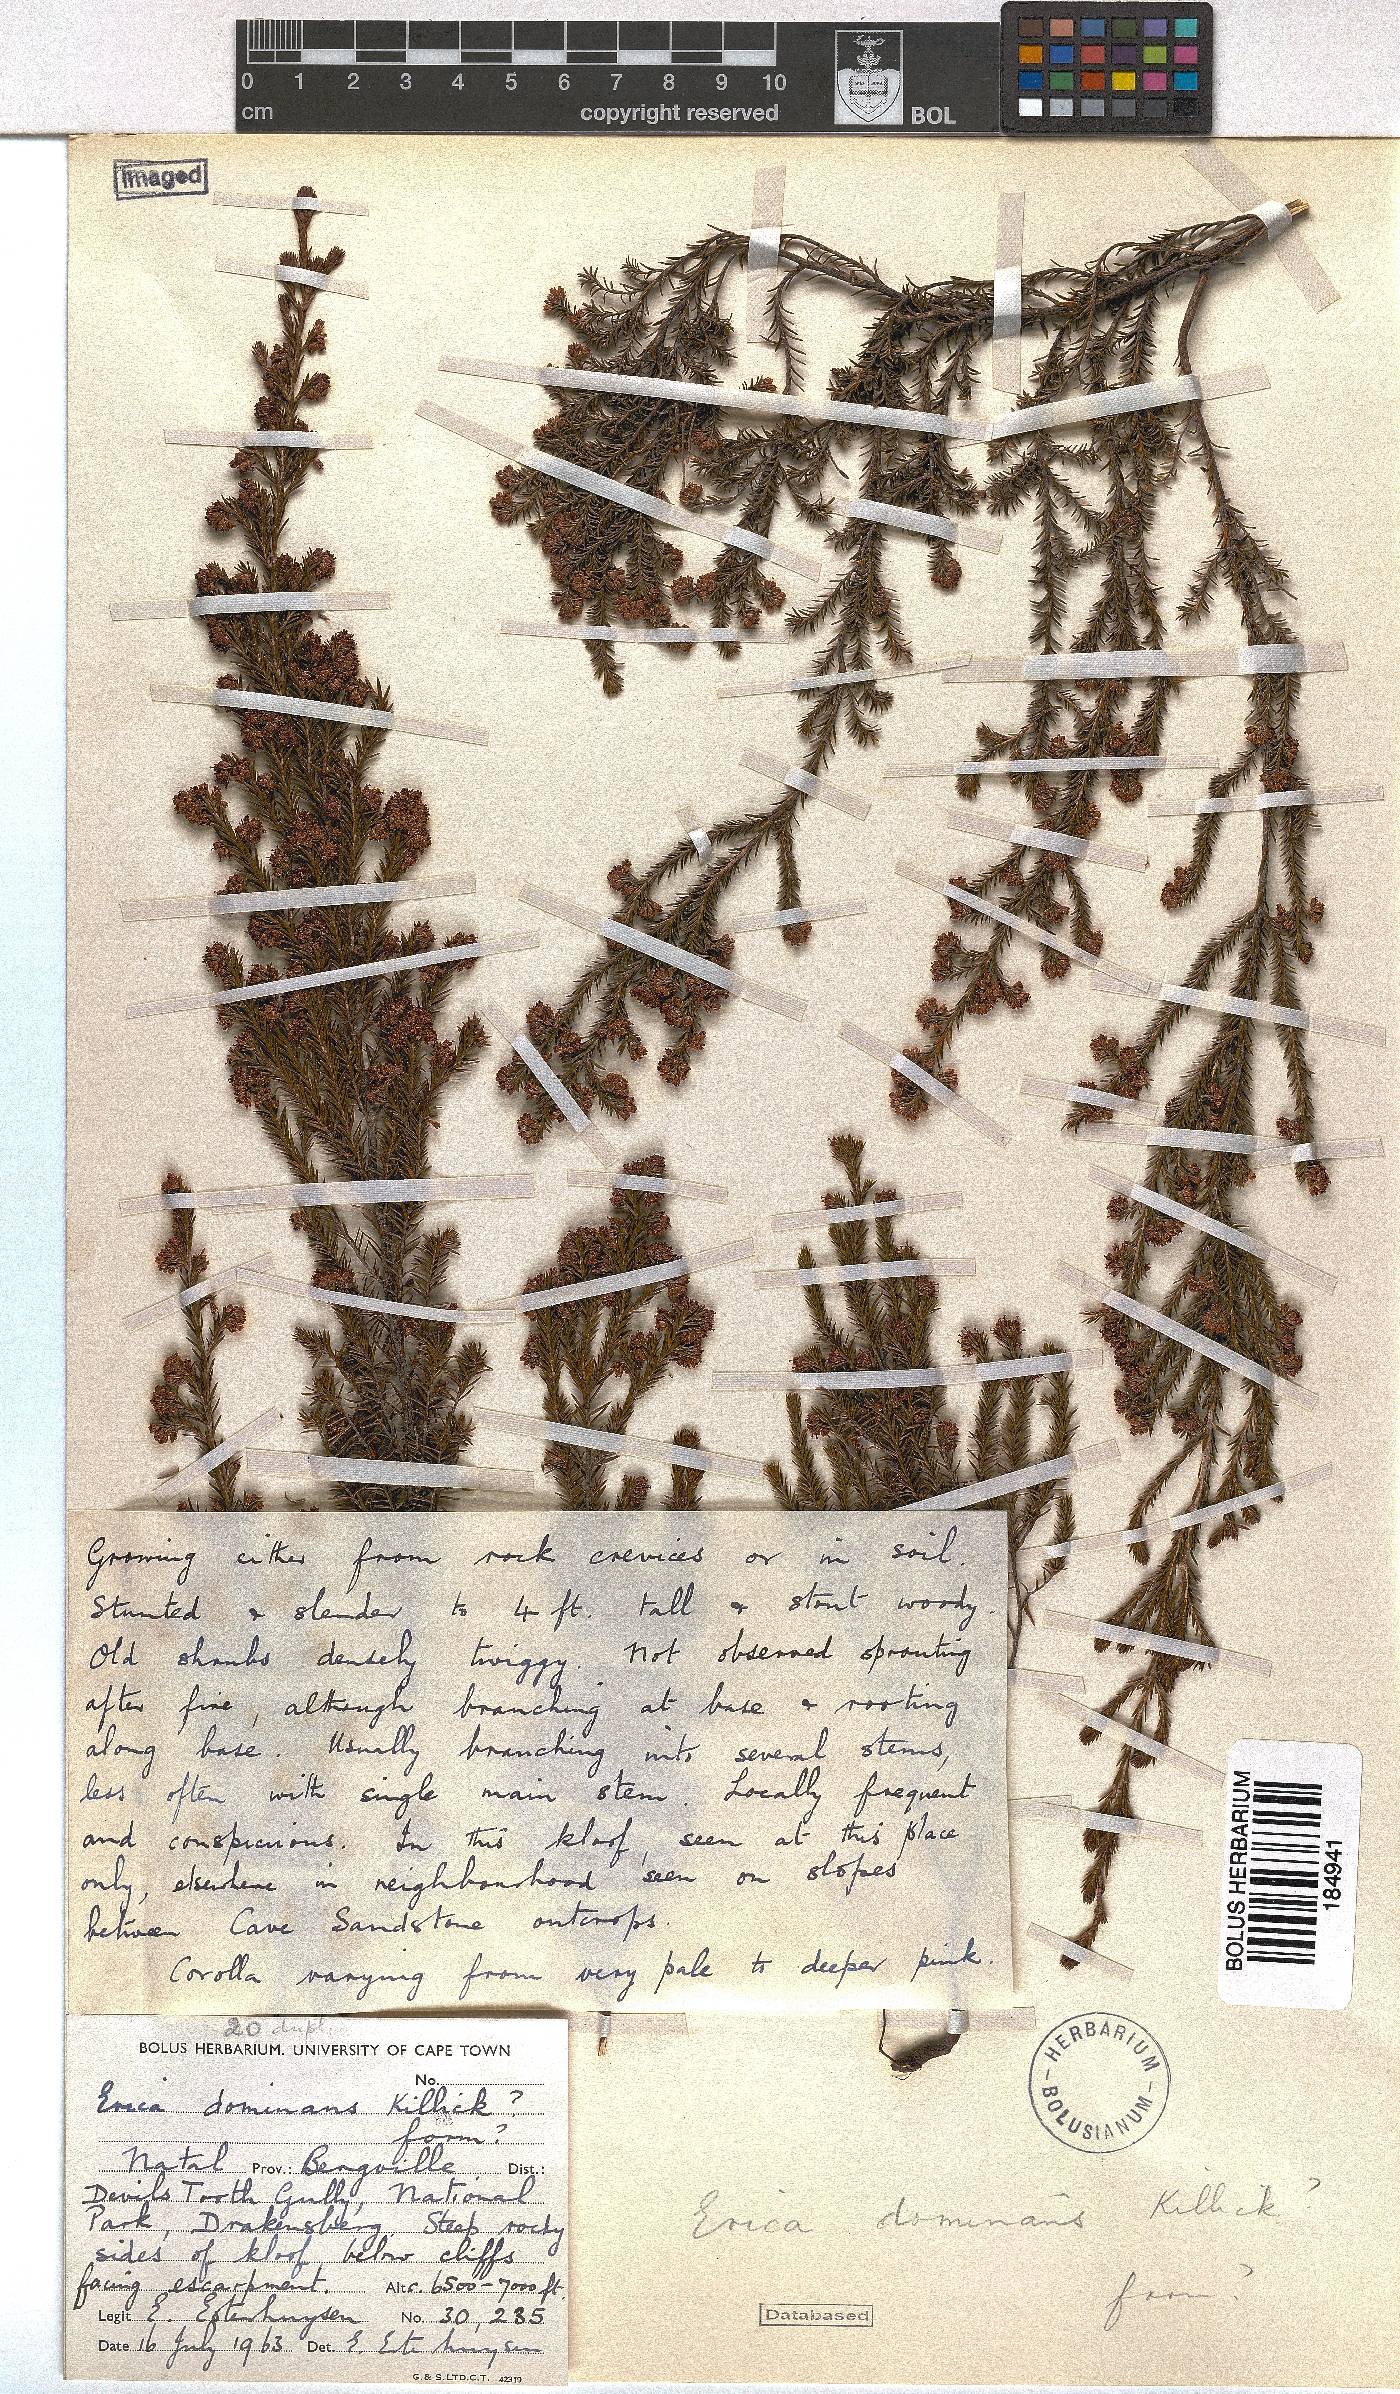 0 1 2 3 4 5 6 7 8 9 10
cm copyright reserved BOL
Imaged
Growing either from rock crevices or in soil.
Stunted & slender to 4 ft. tall & stout woody.
Old shrubs densely twiggy. Not observed sprouting
after fire, although branching at base & rooting
along base. Usually branching into several stems,
less often with single main stem. Locally frequent
and conspicuous. In this kloof, seen at this place
only, elsewhere in neighbourhood seen on slopes
between Cave Sandstone outcrops.
Corolla varying from very pale to deeper pink.
BOLUS HERBARIUM
184941
20 dupl.
BOLUS HERBARIUM. UNIVERSITY OF CAPE TOWN
No.
Erica dominans Killick?
form?
Natal Prov.: Bergville Dist.:
Devils Tooth Gully, National
Park, Drakensberg. Steep rocky
sides of kloof below cliffs
facing escarpment. Alt c. 6500-7000 ft.
Legit E. Esterhuysen No. 30,235
Date 16 July 1963 Det. E. Esterhuysen
G. & S. LTD. C.T. 42319
HERBARIUM
BOLUSIANUM
Erica dominans Killick?
form?
Databased